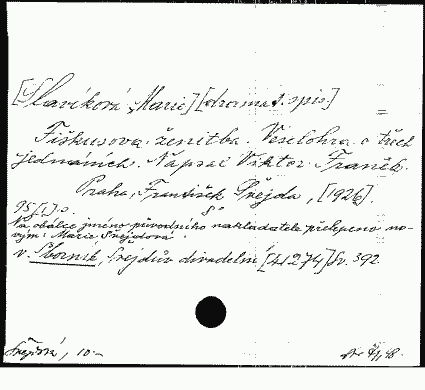 [Slavíková, Marie] [dramat. spis.]
Fiškusova ženitba. Veselohra o třech
jednáních. Napsal Viktor Franěk.
Praha, František Šrejda, [1926].
95 [1] s. 8°
Na obálce jméno původního nakladatele přelepeno no-
vým: Marie Šrejdová.
v. Sborník, Šrejdův divadelní [41274] Sv. 392
Šrejdová, 10.-